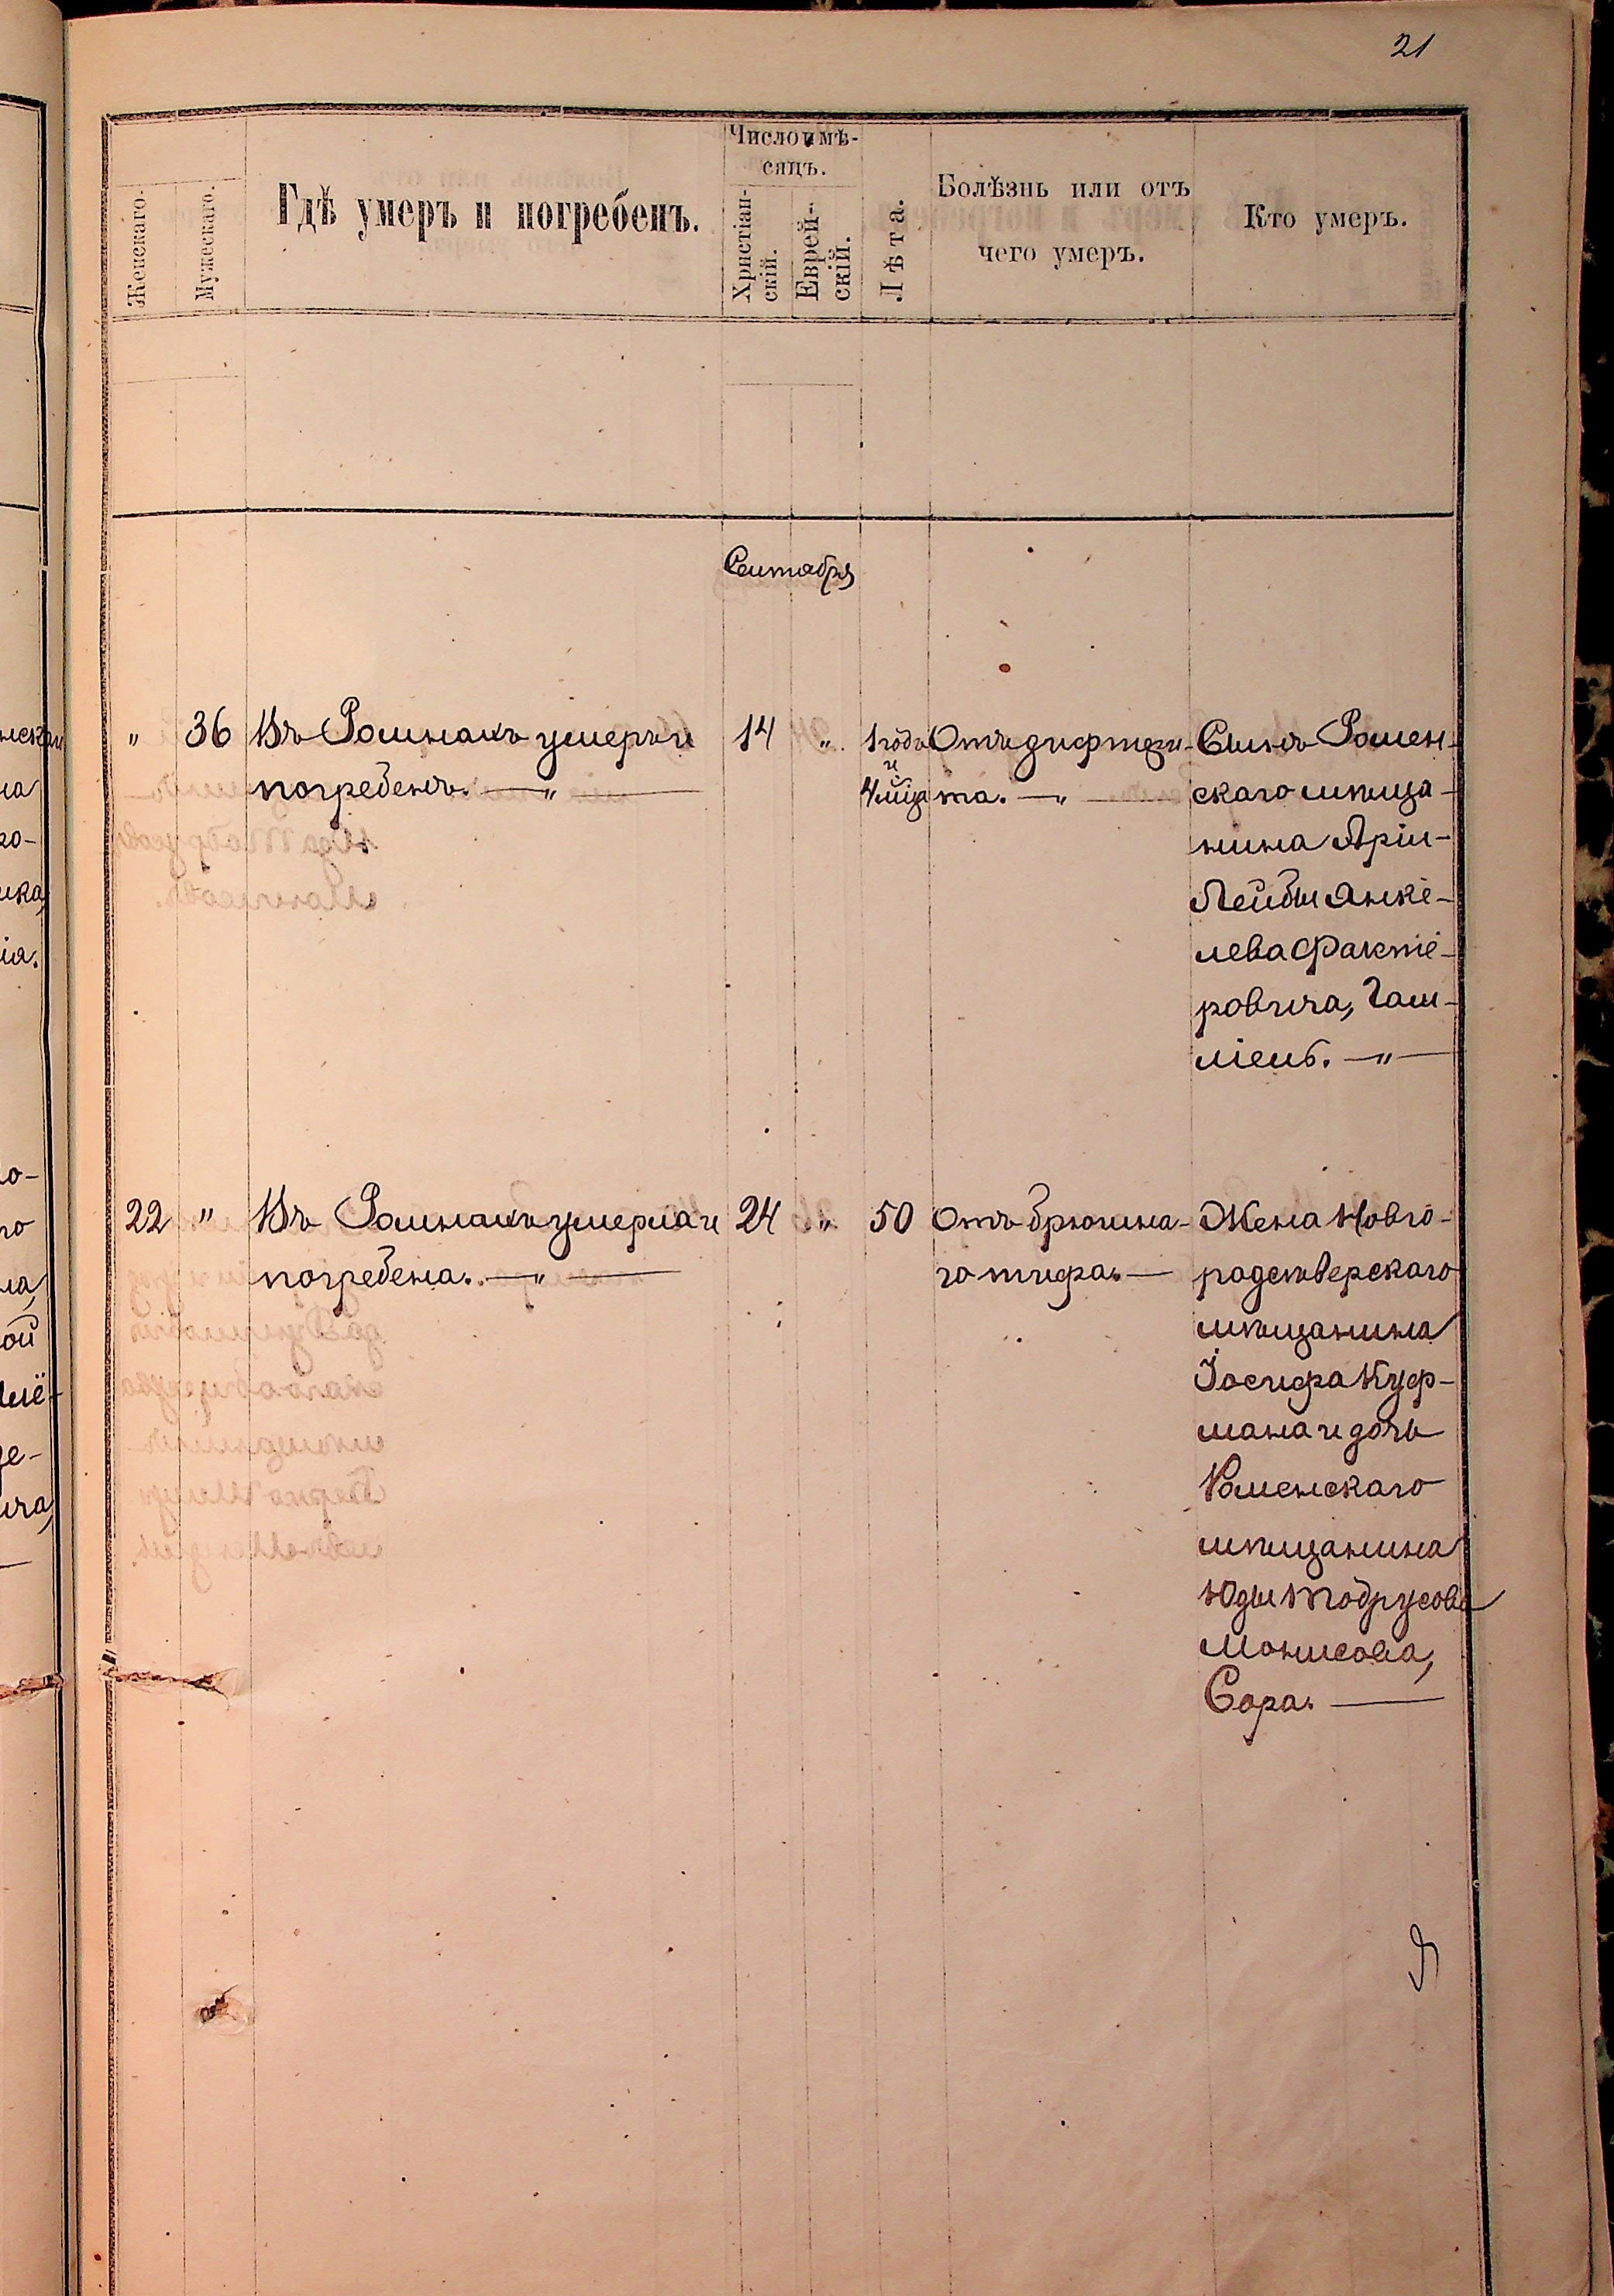 21
Женскаго.
Мужескаго.
Гдѣ умеръ и погребенъ.
Число и мѣ-
сяцъ.
Христіан-
скій.
Еврей-
скій.
Лѣта.
Болѣзнь или отъ
чего умеръ.
Кто умеръ.
Сентября
" 36 Въ Ромнахъ умеръ и
погребенъ. —"—
14 "
1 года
и
4 м͠ца
Отъ дифтери-
та. —"—
Сынъ Ромен-
скаго мѣща-
нина Арiи-
Лейбы Янке-
лева Фактe-
ровича,
22 " Въ Ромнахъ умерла и
погребена. —"—
24 "
50
Отъ брюшна-
го тифа. —
Жена Новго-
родсѣверскаго
мѣщанина
Іосифа Куф-
мана и дочь
Роменскаго
мѣщанина
Юды Тодрусова
Монисова,
Сора. —